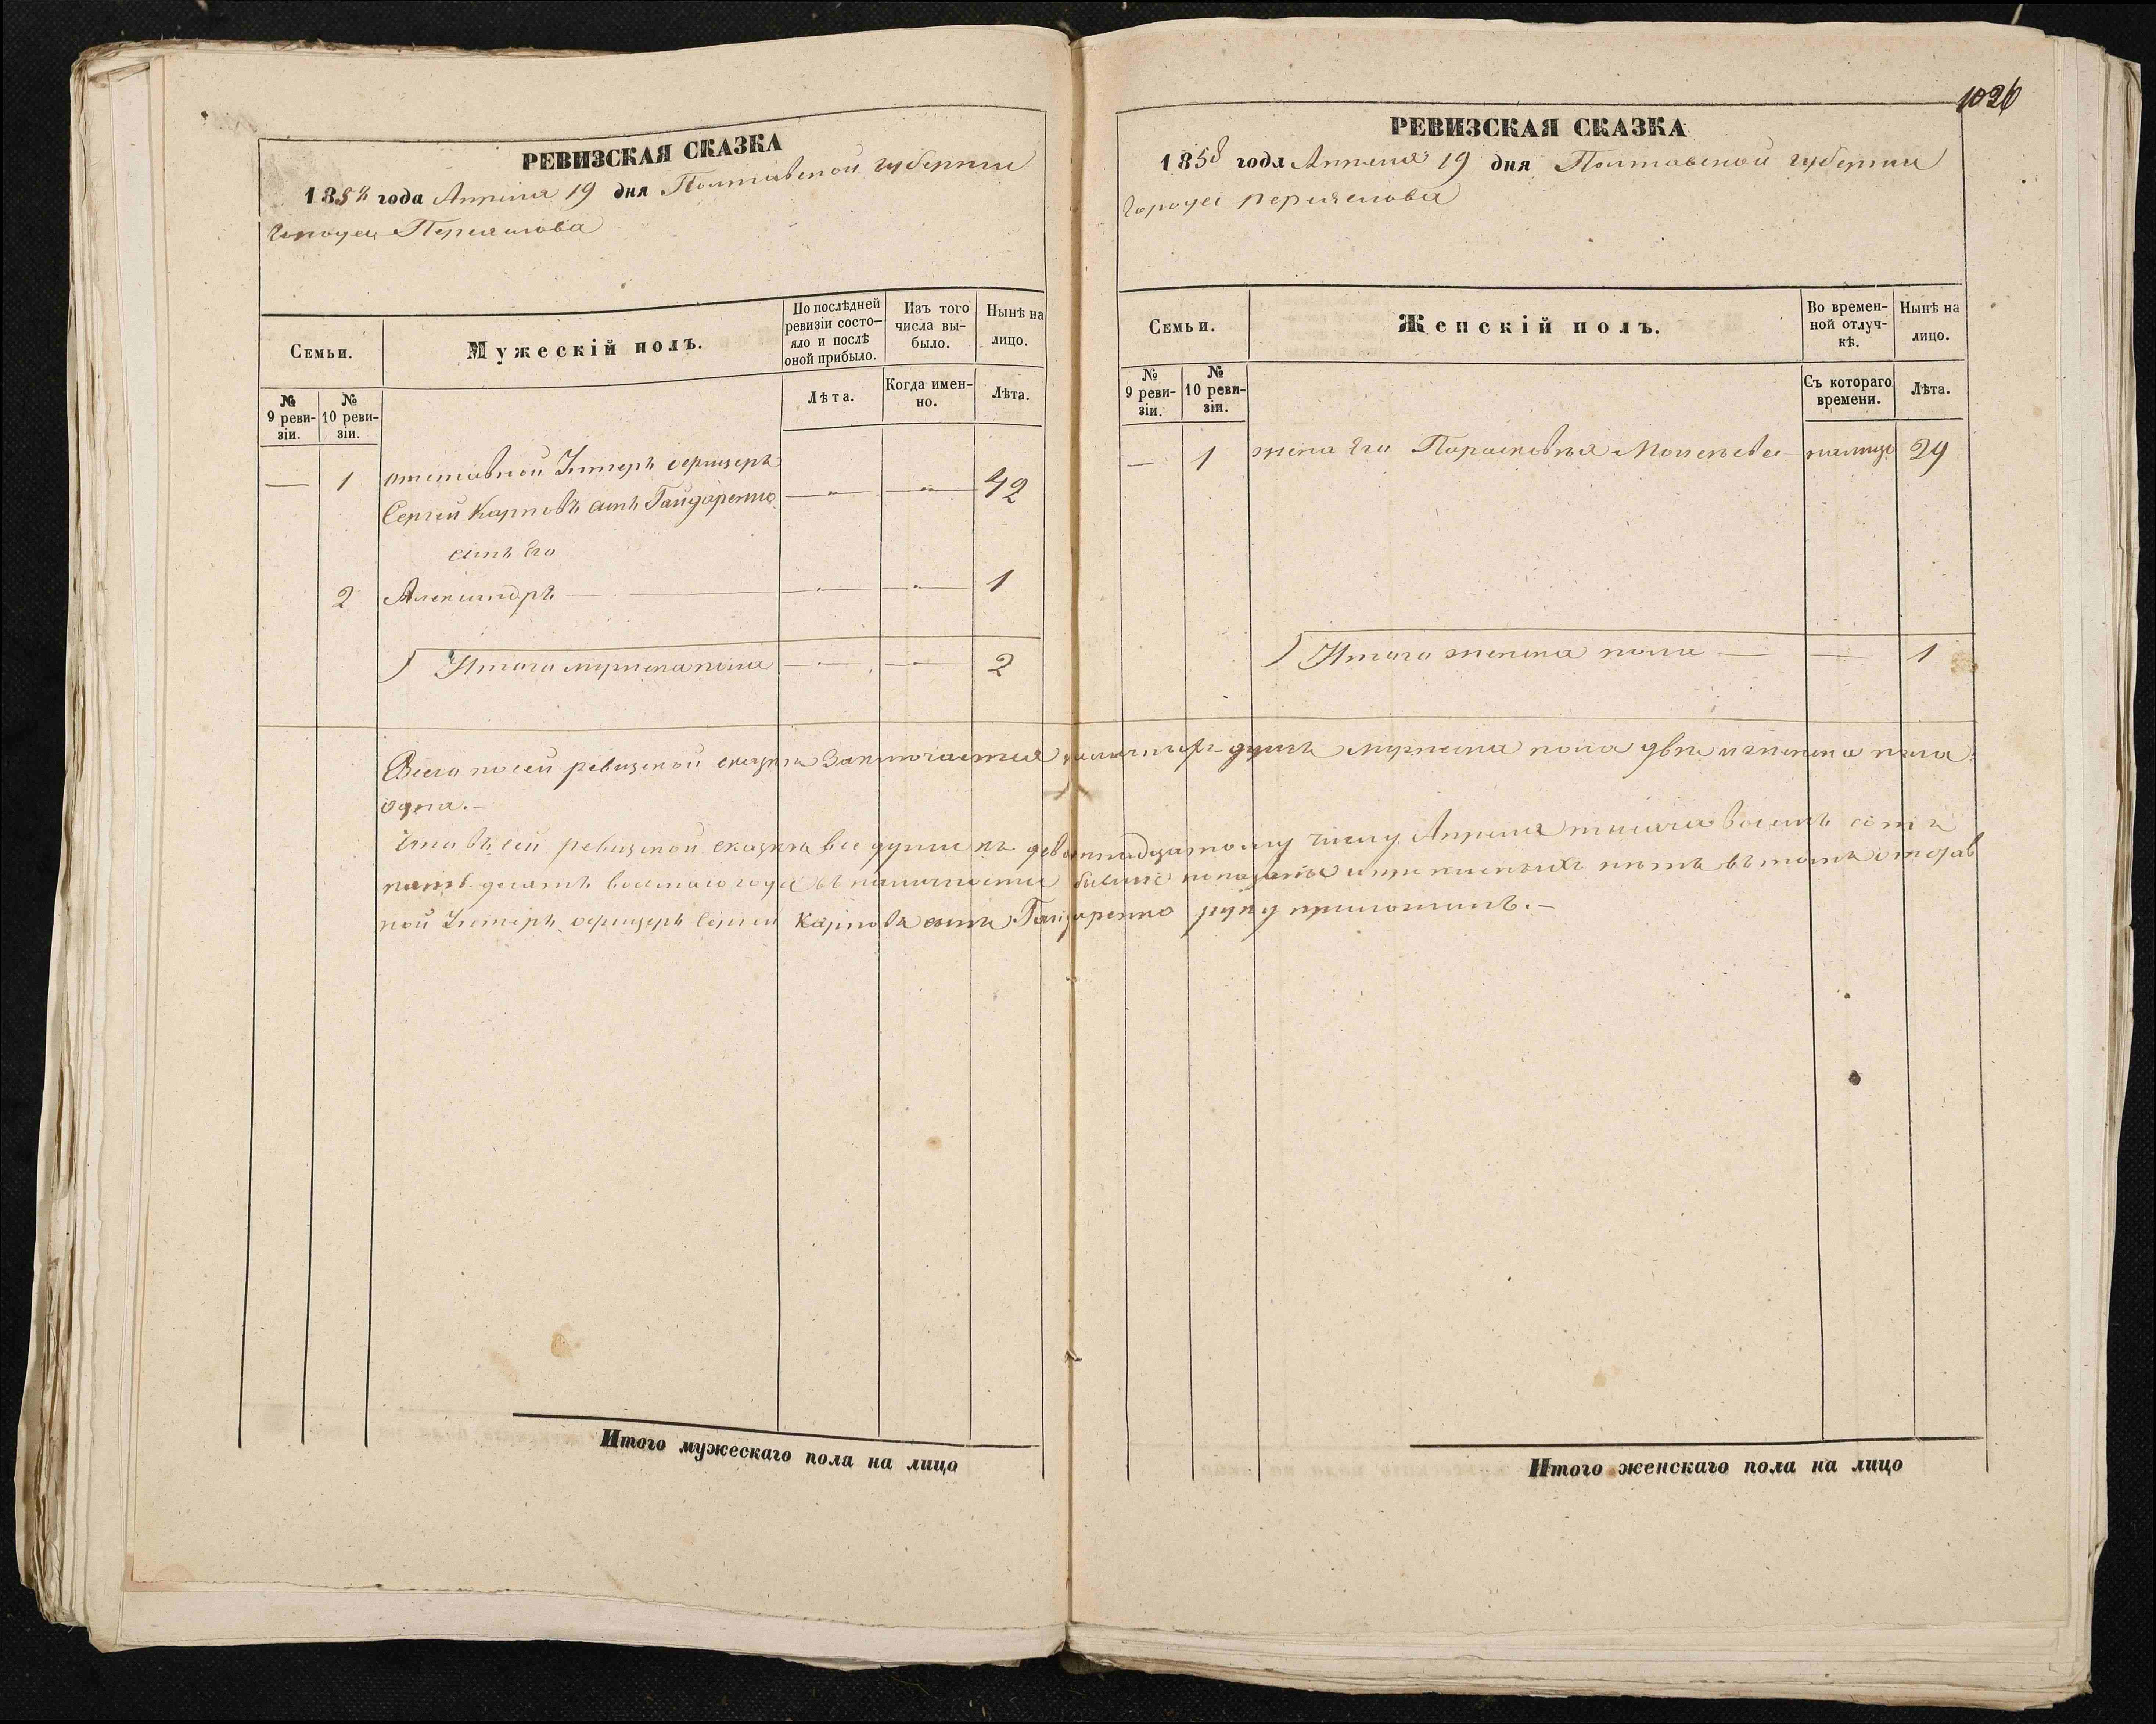 1026
РЕВИЗСКАЯ СКАЗКА
1858 года Апреля 19 дня Полтавской губернии
города Переяслова
Семьи.
Мужескій полъ.
По послѣдней ревизіи состо-
яло и послѣ
оной прибыло.
Изъ того
числа вы-
было.
Нынѣ на
лицо.
№
9 реви-
зіи.
№
10 реви-
зіи.
Лѣта.
Когда имен-
но.
Лѣта.
— 1 отставной Унтеръ офицеръ
Сергей Карповъ сынъ Гайдаренко — „ — — „ — 42
сынъ Его
2 Александръ — — — 1
Итого мужеска пола — — 2
РЕВИЗСКАЯ СКАЗКА
1858 года Апреля 19 дня Полтавской губернии
города Переяслова
Семьи.
Женскій полъ.
Во времен-
ной отлуч-
кѣ.
Нынѣ на
лицо.
№
9 реви-
зіи.
№
10 реви-
зіи.
Съ котораго
времени.
Лѣта.
— 1 жена Его Парасковъя 29
Итого женска пола — — 1
Всего по сей ревизской сказкѣ заключается наличныхъ душъ мужеска пола две и женска пола
одна.—
Что въ сей ревизской сказкѣ все души къ девятнадцатому числу Апреля тысяча восемъ сотъ
пятъ десятъ восмаго года въ наличности бывшіе показаны и прописныхъ нѣтъ въ томъ отстав
ной Унтеръ офицеръ Сергей Карповъ сынъ Гайдаренко руку приложилъ.—
Итого мужескаго пола на лицо
Итого женскаго пола на лицо